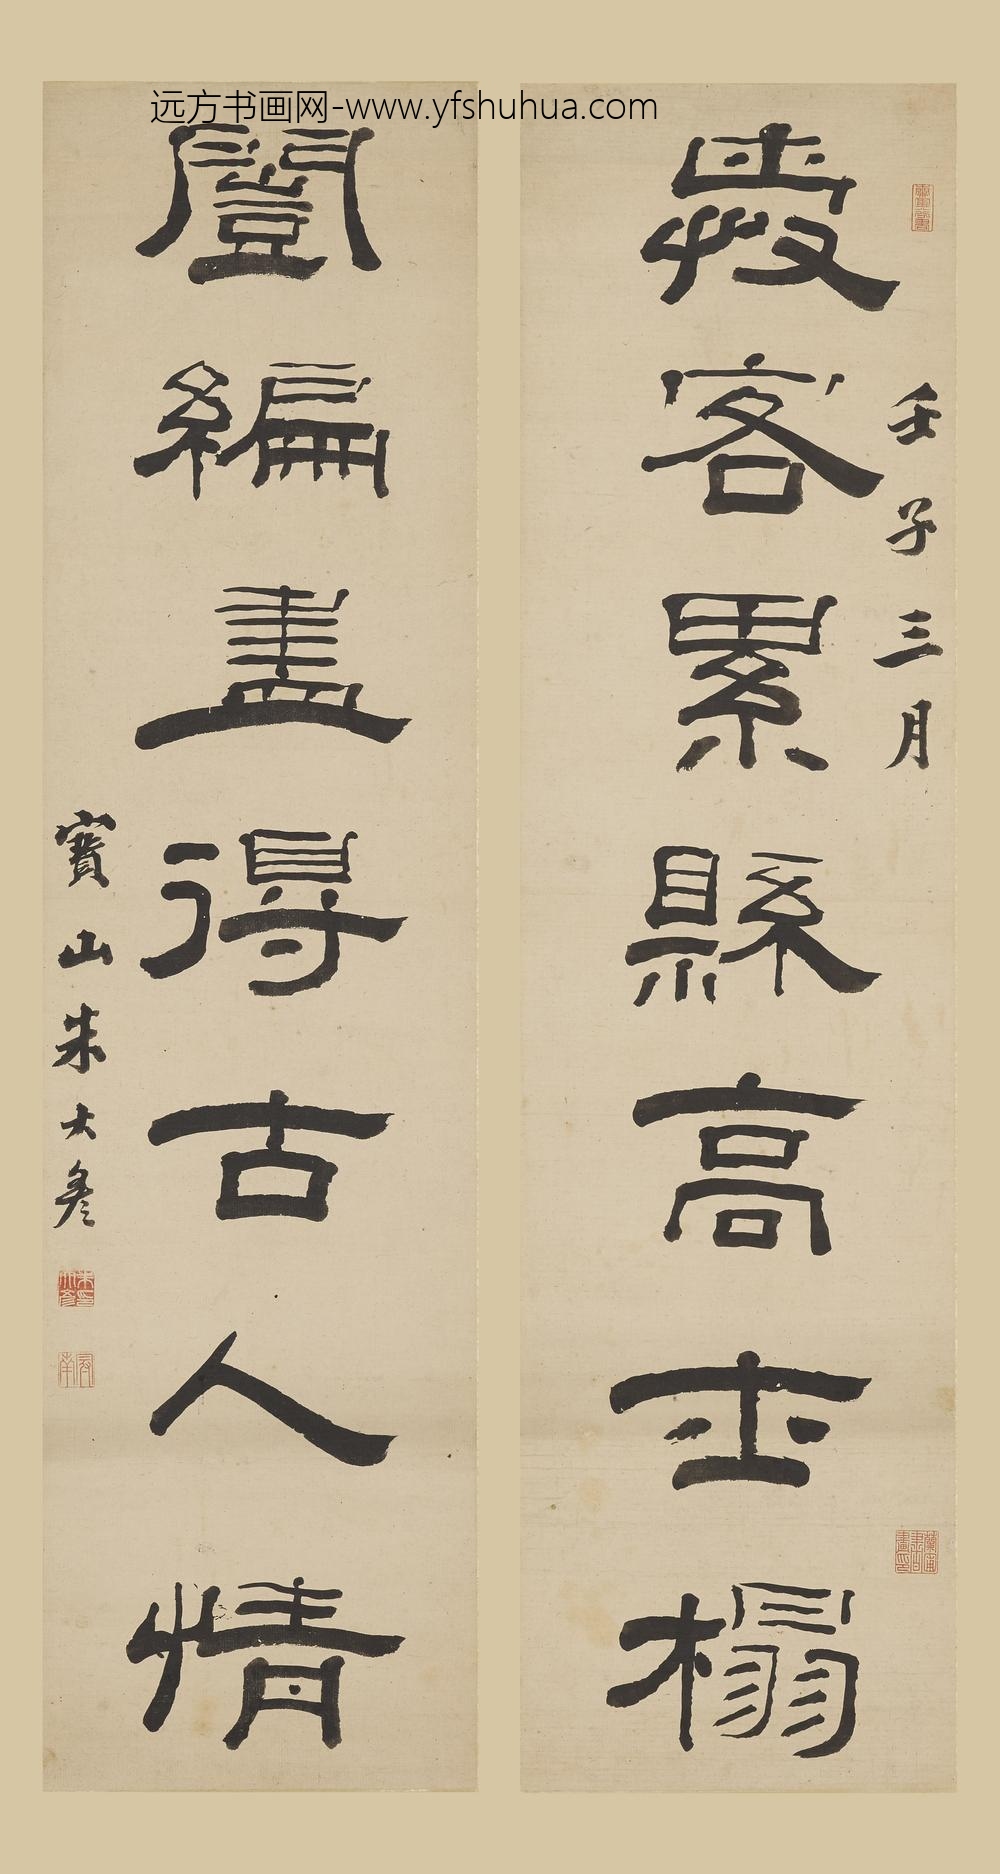 远方书画网-www.yfshuhua.com
愛客累縣高士榻
壬子三月
闓編盡得古人情
寶山朱大彥